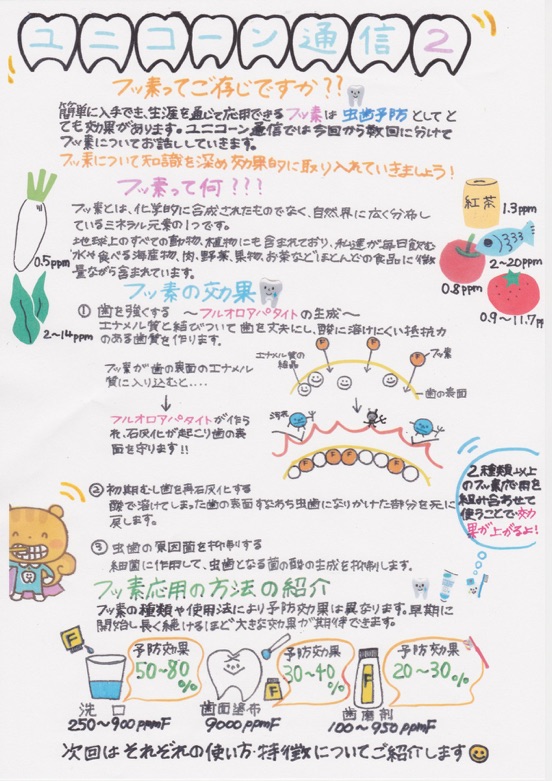 ユニコーン通信2
フッ素ってご存じですか??
簡単に入手でき、生涯を通じて応用できるフッ素は虫歯予防としてと
ても効果があります。ユニコーン通信では今回から数回に分けて
フッ素についてお話ししていきます。
フッ素について知識を深め効果的に取り入れていきましょう!
フッ素って何???
フッ素とは、化学的に合成されたものでなく、自然界に広く分布し
ているミネラル元素の1つです。
地球上のすべての動物、植物にも含まれており、私達が毎日飲む
水や食べる海産物、肉、野菜、果物、お茶などほとんどの食品に微
量ながら含まれています。
0.5ppm
2~14ppm
紅茶
1.3ppm
2~20ppm
0.8ppm
0.9~11.7ppm
フッ素の効果
① 歯を強くする ~フルオロアパタイトの生成~
エナメル質と結びついて歯を丈夫にし、酸に溶けにくい抵抗力
のある歯質を作ります。
フッ素が歯の表面のエナメル
質に入り込むと・・・・
フルオロアパタイトが作ら
れ、石灰化が起こり歯の表
面を守ります!!
エナメル質の
結晶
F
F
F
フッ素
歯の表面
② 初期むし歯を再石灰化する
酸で溶けてしまった歯の表面すなわち虫歯になりかけた部分を元に
戻します。
③ 虫歯の原因菌を抑制する
細菌に作用して、虫歯となる菌の酸の生成を抑制します。
2種類以上
のフッ素応用を
組み合わせて
使うことで効
果が上がるよ!
フッ素応用の方法の紹介
フッ素の種類や使用法により予防効果は異なります。早期に
開始し長く続けるほど大きな効果が期待できます。
F
予防効果
50~80
%
洗口
250~900ppmF
F
予防効果
30~40
%
歯面塗布
9000ppmF
F
予防効果
20~30%
歯磨剤
100~950ppmF
次回はそれぞれの使い方・特徴についてご紹介します